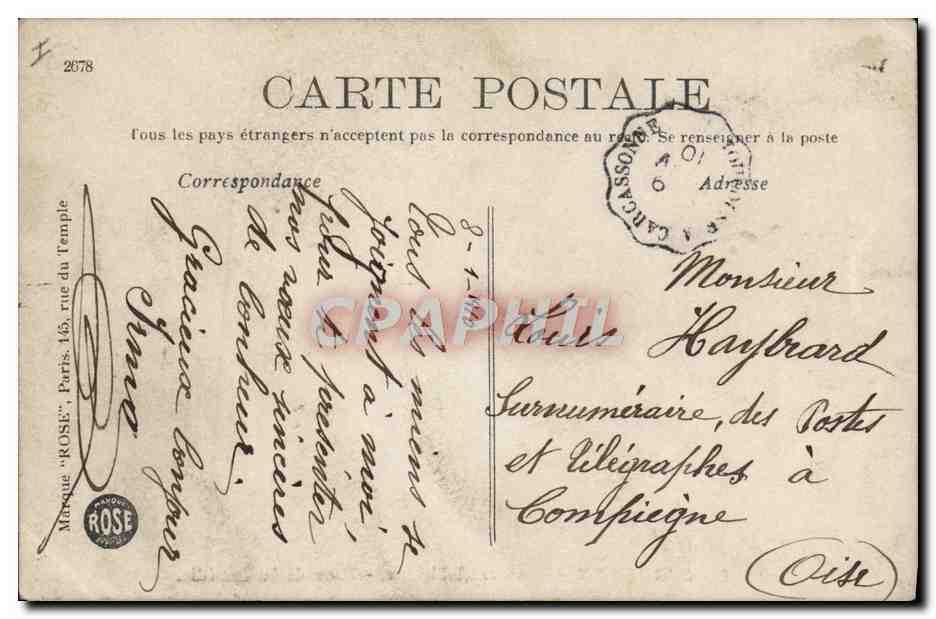 2678
CARTE POSTALE
Tous les pays étrangers n'acceptent pas la correspondance au recto. Se renseigner à la poste
Correspondance
Adresse
CARCASSONNE
A 10
6
8-1-10
Tous les miens se
joignent à moi
pour te présenter
nos vœux sincères
de bonheur.
Gracieux bonjour
Irma
Monsieur
Louis Haybrard
Surnuméraire, des Postes
et Télégraphes à
Compiègne
(Oise)
Marque "ROSE", Paris. 145, rue du Temple
MARQUE
ROSE
CPAPHIL